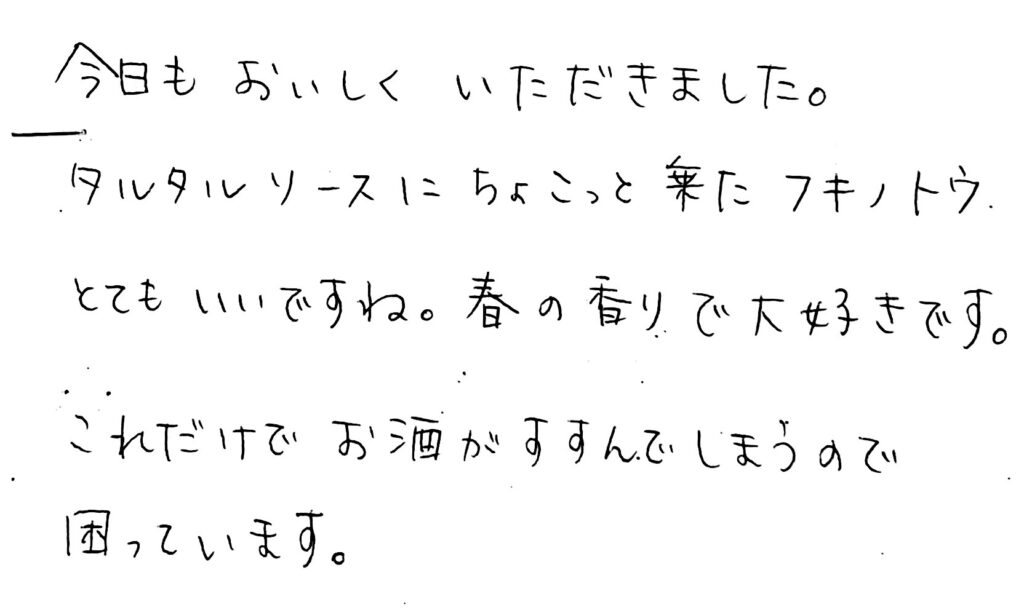 今日も おいしく いただきました。
タルタルソースに ちょこっと 乗た フキノトウ
とても いいですね。春の香りで大好きです。
これだけで お酒がすすんでしまうので
困っています。